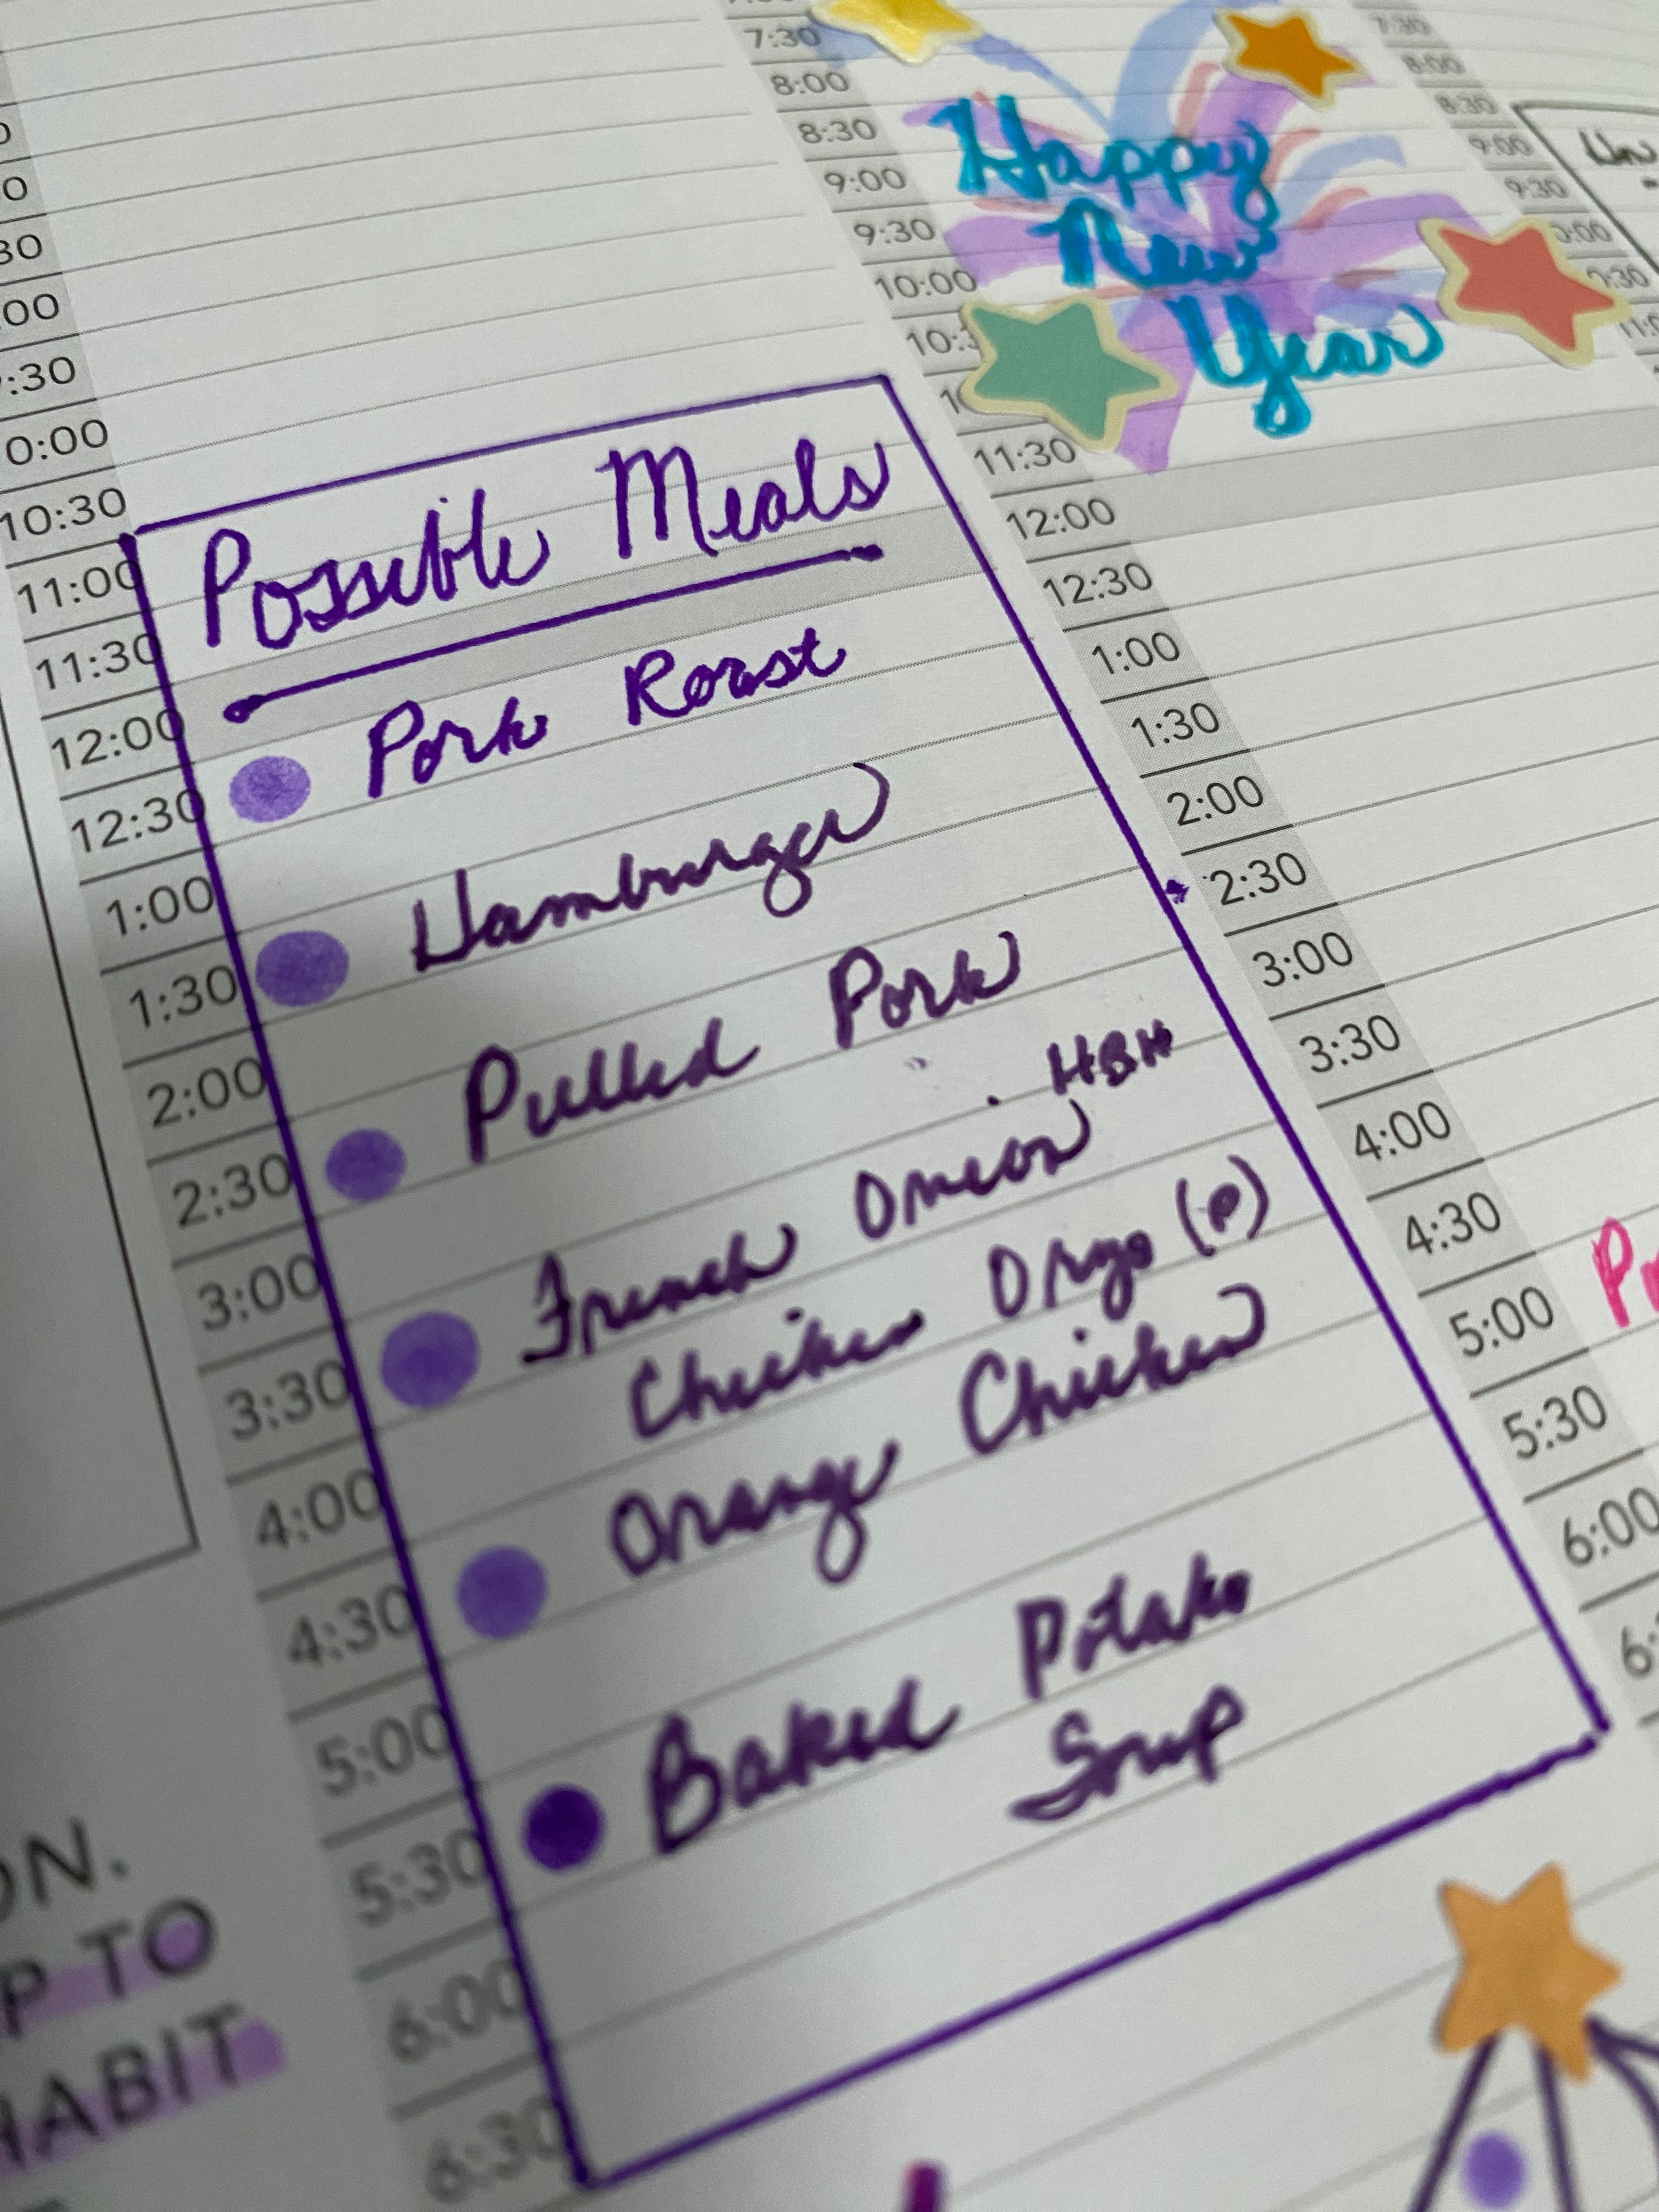 0:00
10:30
11:00
11:30
12:00
12:30
1:00
1:30
2:00
2:30
3:00
3:30
4:00
4:30
5:00
5:30
6:00
6:30
Possible Meals
Pork Roast
Hamburger
Pulled Pork
HBH
French Onion
Chicken Orzo (P)
Orange Chicken
Baked Potato
Soup
7:30
8:00
8:30
9:00
9:30
10:00
11:30
12:00
12:30
1:00
1:30
2:00
2:30
3:00
3:30
4:00
4:30
5:00
5:30
6:00
Happy
New
Year
7:30
8:00
8:30
9:00
9:30
ON.
P TO
HABIT